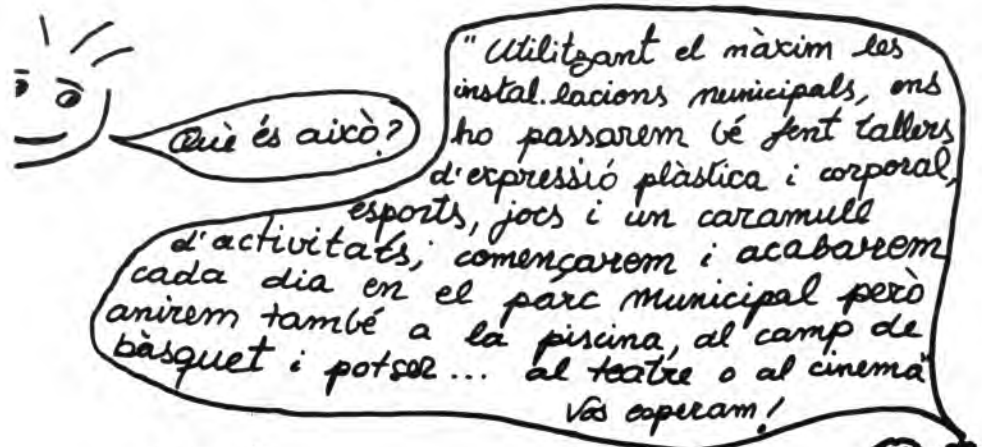 Què és això?
"Utilitzant el màxim les
instal.lacions municipals, ens
ho passarem bé fent tallers
d'expressió plàstica i corporal,
esports, jocs i un caramull
d'activitats; començarem i acabarem
cada dia en el parc municipal però
anirem també a la piscina, al camp de
bàsquet i potser... al teatre o al cinema"
Vos esperam!